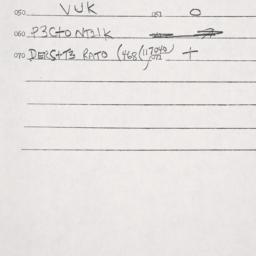 050 VUK 051 O
060 P3CTONT21K
070 DERST3 RATO (468(117040) 071 +